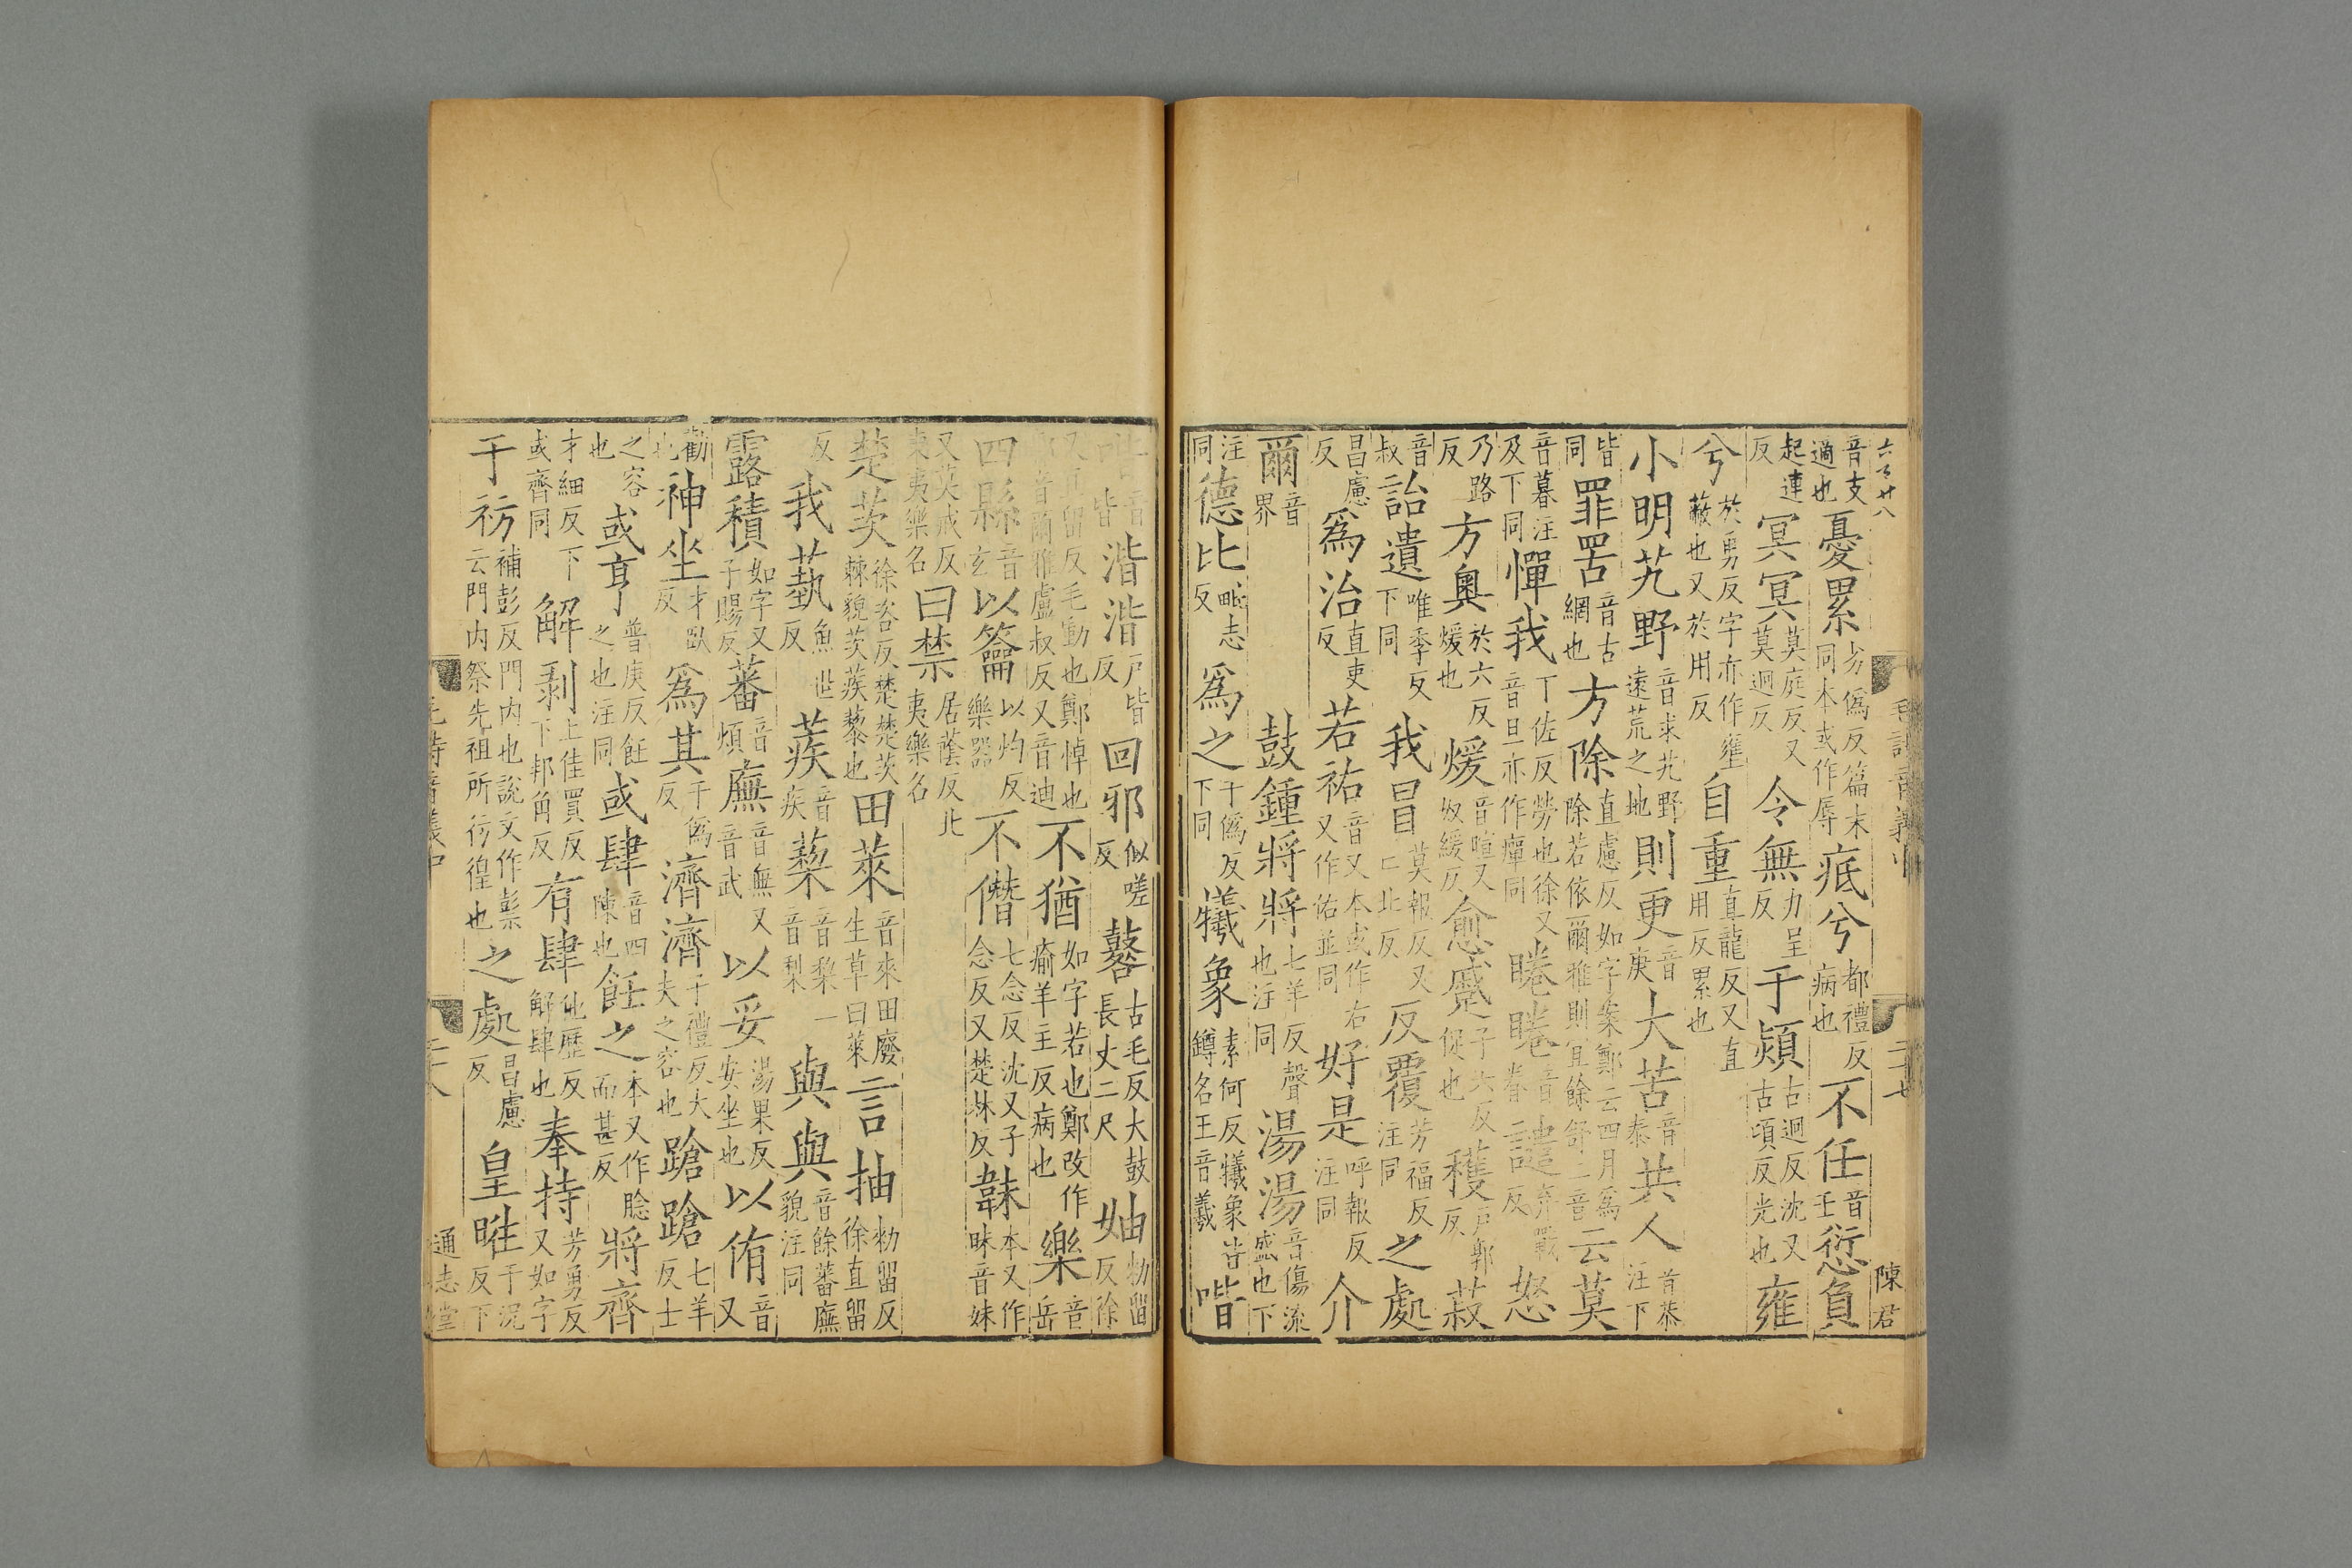 六百廿八
毛詩音義中 二十七 陳君
音支適也憂累劣僞反篇末同本或作辱疧兮都禮反病也不任音壬愆負
起連反冥冥莫庭反又莫迥反令無力呈反于熲古迥反沈又古頃反光也雍
兮於勇反字亦作壅蔽也又於用反自重直龍反又直用反累也
小明艽野音求艽野遠荒之地則更音庚大苦音泰共人音恭注下
皆同罪罟音古網也方除直慮反如字案鄭云四月爲除若依爾雅則宜餘舒二音云莫
音暮注及下同憚我丁佐反勞也徐又音旦亦作癉同睠睠音眷譴弃戰反怒
乃路反方奧於六反煖也煖音暄又奴緩反愈蹙子六反促也穫戶郭反菽
音叔詒遺唯季反下同我冒莫報反又亡北反反覆芳福反注同之處
昌慮反爲治直吏反若祐音又本或作右又作佑並同好是呼報反注同介
爾音界
鼓鍾將將七羊反聲也注同湯湯音傷流盛也下
注同德比毗志反爲之于僞反下同犧象素何反犧象皆鐏名王音羲喈
音皆湝湝戶皆反回邪似嗟反鼛古毛反大鼓長丈二尺妯勑留反徐
又直留反毛動也鄭悼也郭音爾雅盧叔反又音迪不猶如字若也鄭改作瘉羊主反病也樂音岳
四縣音玄以籥以灼反樂器不僭七念反沈又子念反又楚林反韎本又作昧音妹
又莫戒反東夷樂名曰禁居蔭反北夷樂名
楚茨徐咨反楚楚茨棘貌茨蒺藜也田萊音來田廢生草曰萊言抽勑留反徐直留
反我蓺魚世反蒺音疾蔾音黎一音梨與與音餘蕃廡貌注同
露積如字又子賜反蕃音煩廡音無又音武以妥湯果反安坐也以侑音又
勸也神坐才臥反爲其于僞反濟濟子禮反大夫之容也蹌蹌七羊反士
之容也或亨普庚反飪之也注同或肆音四陳也飪之本又作腍而甚反將齊
才細反下或齊同解剥上佳買反下邦角反有肆他歷反解肆也奉持芳勇反又如字
于祊補彭反門内也說文作𥛱云門内祭先祖所彷徨也之處昌慮反皇暀于況反下
毛詩音義中 二十八 通志堂